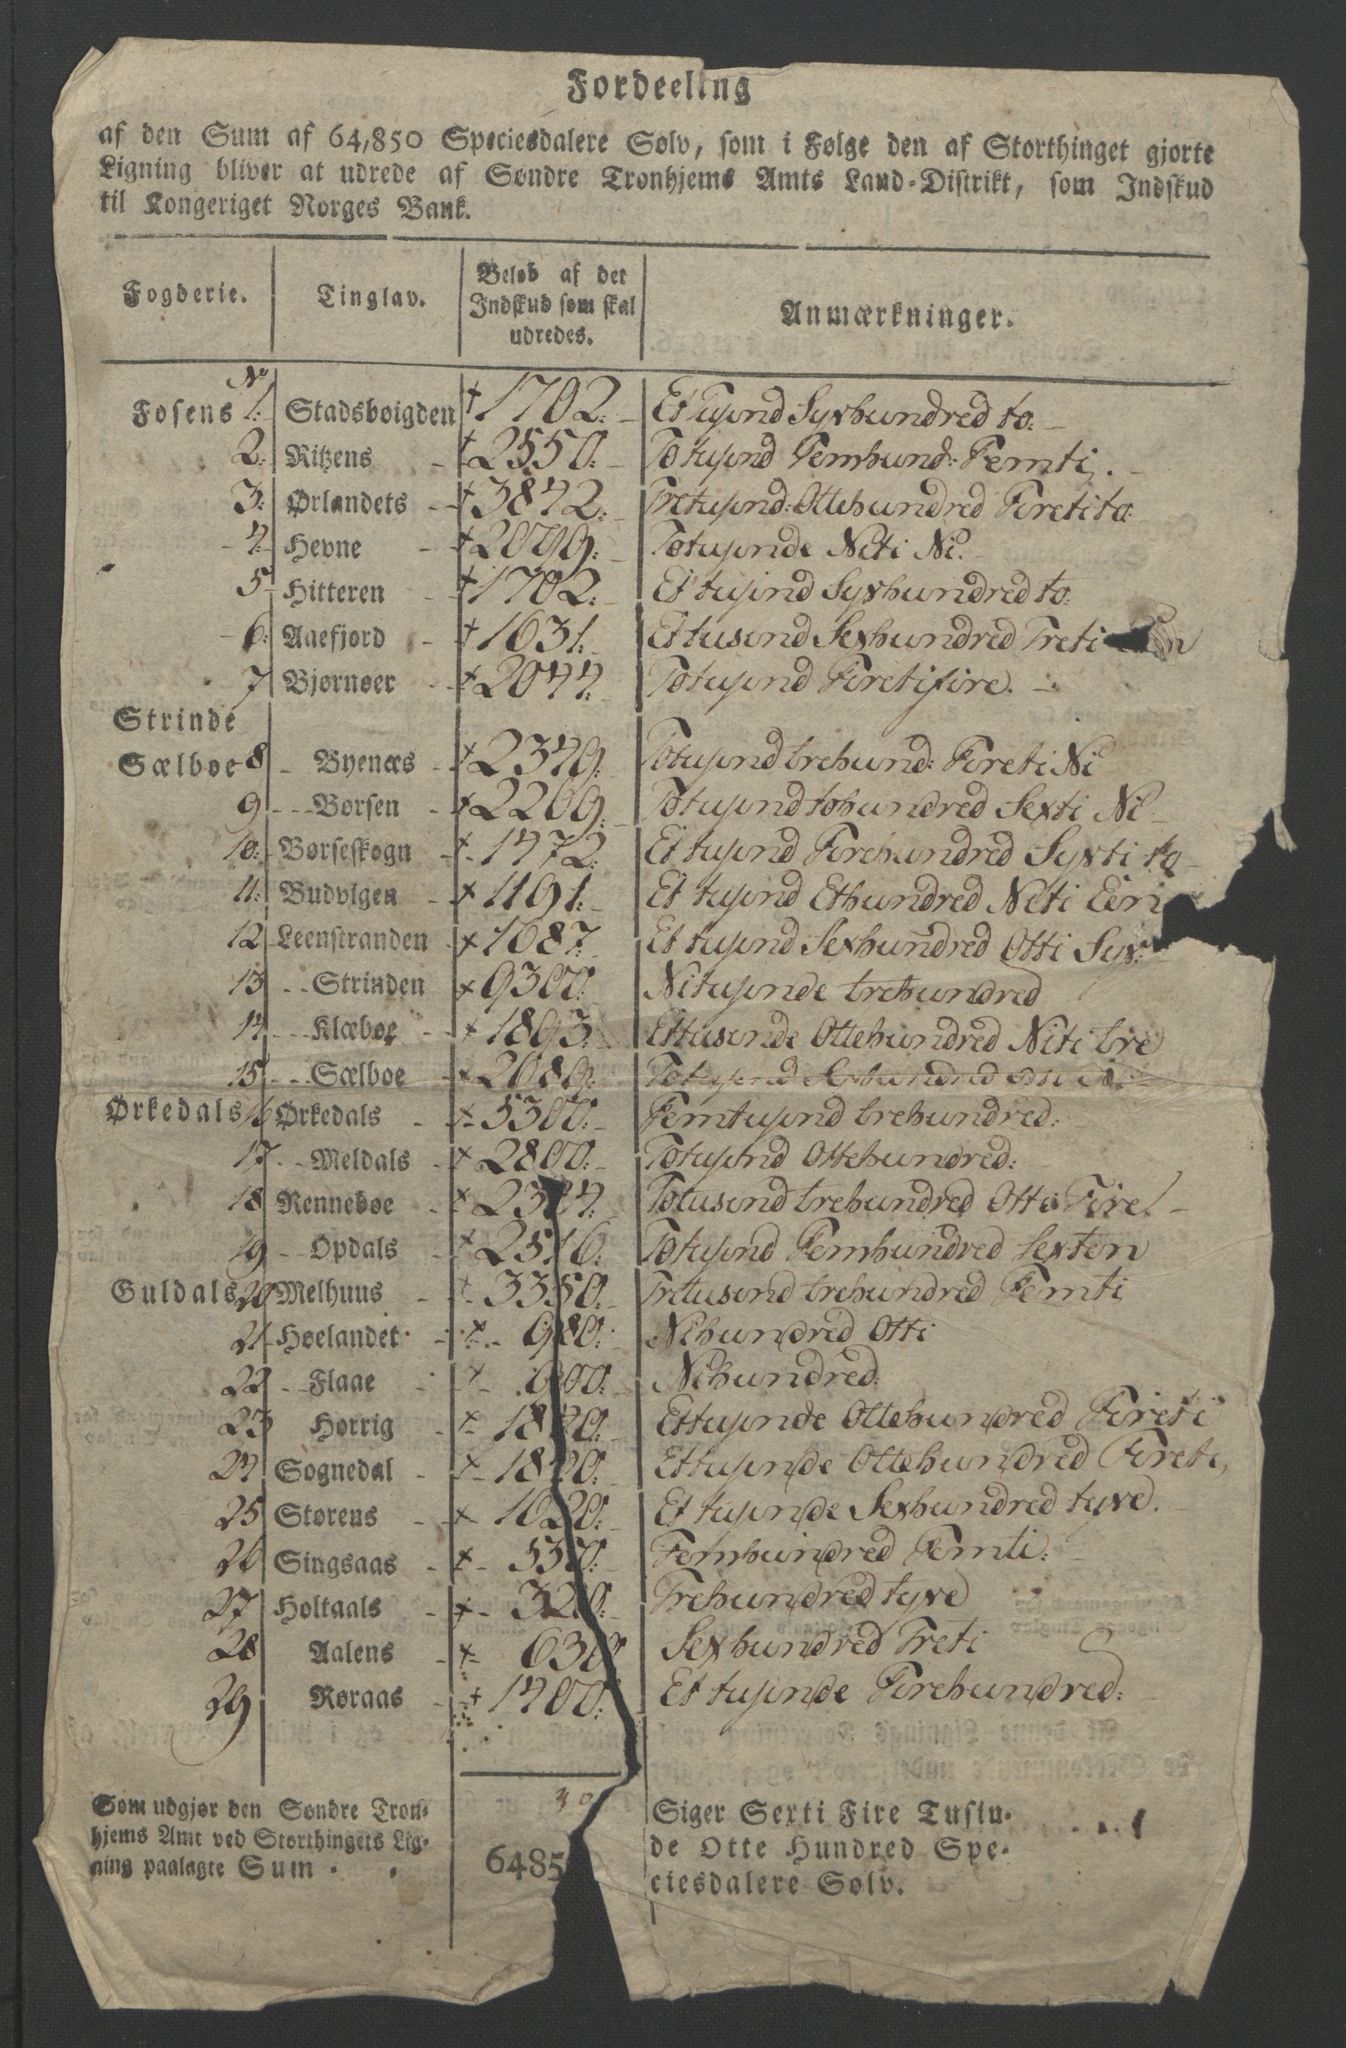 Fordeeling
af den Sum af 64,850 Speciesdalere Sølv, som i Følge den af Storthinget gjorte
Ligning bliver at udrede af Søndre Tronhjems Amts Land-Distrikt, som Indskud
til Kongeriget Norges Bank.
Fogderie. Tinglav. Beløb af det Indskud som skal udredes. Anmærkninger.
No
Fosens 1. Stadsbøigden 1702. Et Tusind Syvhundred to.
2. Ritzens 2550. Totusind Femhund: Femti.
3. Ørlandets 3842. Tretusind Ottehundred Firetito.
4. Hevne 2099. Totusinde Niti Ni.
5 Hitteren 1702. Et tusind Syvhundred to.
6. Aaefjord 1631. Et tusend Sexhundred Treti
7 Bjørnøer 2044. Totusind Firetifire.
Strinde
Sælboe 8 Byenæs 2349. Totusind trehund: Fireti Ni
9 Børsen 2269. Totusind tohundred Sexti Ni
10. Børseskogn 1472. Et tusind Firehundred Syvti to
11. Budvigen 1191. Et tusind Ethundred Niti Een
12 Leenstranden 1687. Et tusind Sexhundred Otti Syv.
13 Strinden 9300. Nitusinde trehundred
14 Klæboe 1893. Ettusende Ottehundred Niti tre
15 Sælboe 2689. Totusend Sexhundred Otti Ni.
Ørkedals 16 Ørkedals 5300. Femtusind trehundred.
17 Meldals 2800. Totusind Ottehundred.
18 Renneboe 2384. Totusend trehundred Otti Fire.
19 Opdals 2516. Totusind Femhundred Sexten
Guldals 20 Melhuus 3350. Tretusend trehundred Femti
21 Høelandet 980. Nihundred Otti
22 Flaae 900. Nihundred.
23 Hørrig 1840. Ettusinde Ottehundred Fireti
24 Sognedal 1840. Ettusinde Ottehundred Fireti,
25 Størens 1620. Et tusinde Sexhundred tyve.
26 Singsaas 550. Femhundred Femti.
27 Holtaals 320. Trehundred tyve
28 Aalens 630 Sexhundred Treti
29 Røraas 1400. Et tusinde Firehundred.
Som udgjør den Søndre Tron-
hjems Amt ved Storthingets Lig-
ning paalagte Sum
6485
Siger Sexti Fire Tusin-
de Otte Hundred Spe-
ciesdalere Sølv.